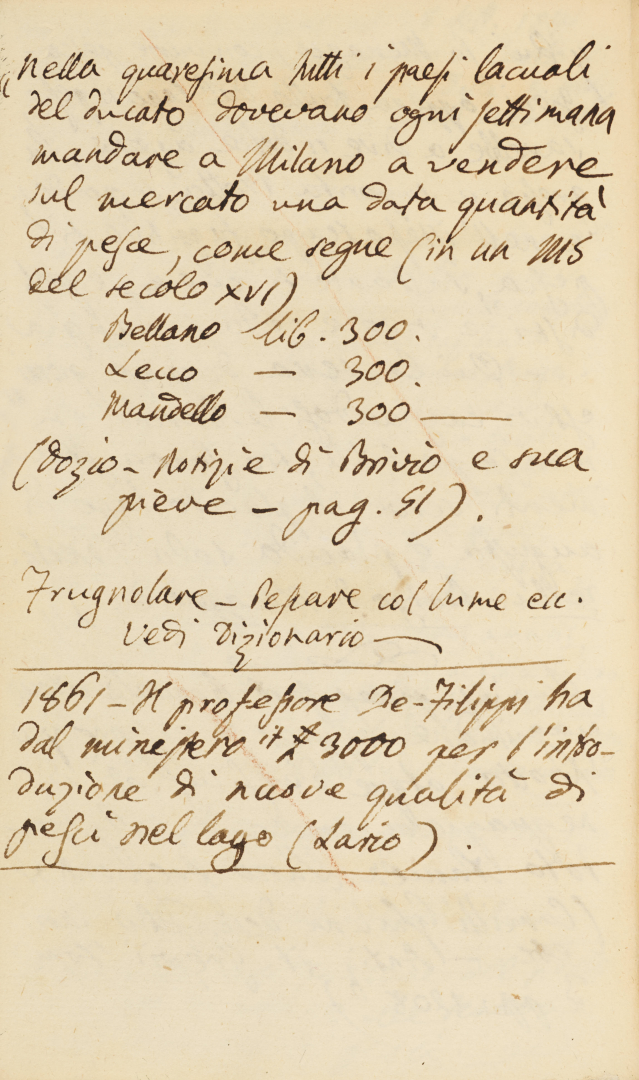 „Nella quaresima tutti i paesi lacuali
del ducato dovevano ogni settimana
mandare a Milano a vendere
sul mercato una data quantità
di pesce, come segue (in un MS
del secolo XVI)
Bellano lib. 300.
Lecco — 300.
Mandello — 300 —
(Dozio - Notizie di Brivio e sua
pieve - pag. 51).
Frugnolare - Pescare col lume ecc.
Vedi Dizionario —
1861 - Il professore De-Filippi ha
dal ministero 3000 per l'intro-
duzione di nuove qualità di
pesci nel lago (Lario).